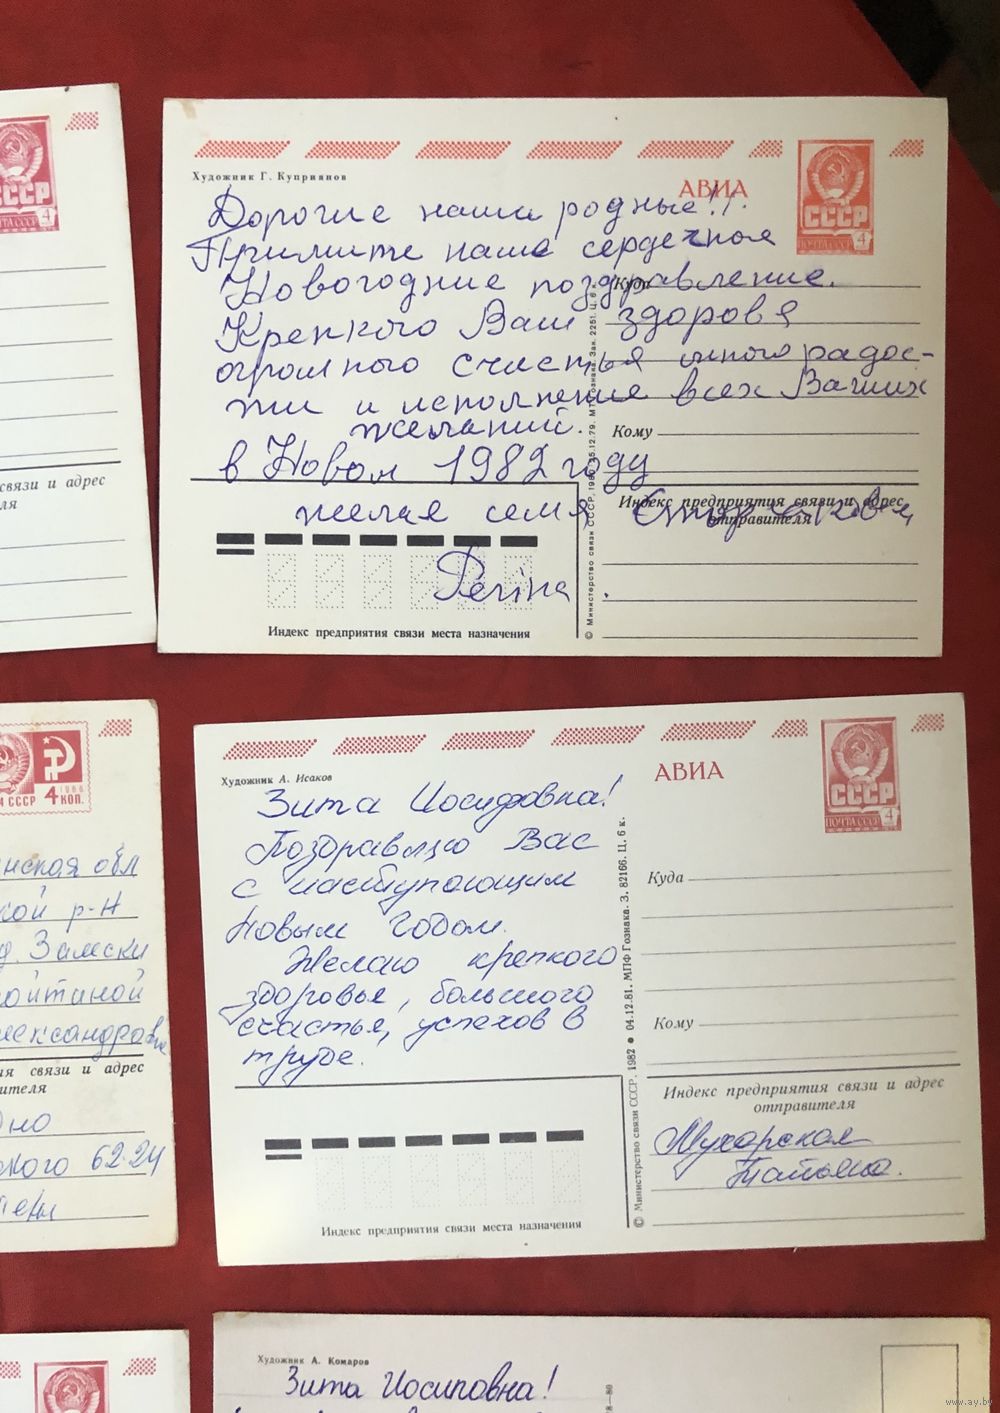 Художник Г. Куприянов
АВИА
СССР
ПОЧТА СССР 4
Дорогие наши родные!!!
Примите наше сердечное
Новогодние поздравление.
Крепкого Вам здоровя
огромного счастья много радос-
ти и исполнение всех Ваших
желаний.
в Новом 1982 году
желая семя
Регіна.
Куда
Кому
Индекс предприятия связи и адрес
отправителя
Индекс предприятия связи места назначения
© Министерство связи СССР, 1980
12.79. МТ Гознака. Зак. 2251. Ц. 6 к.
СССР
ПОЧТА СССР 4
связи и адрес
ля
Художник А. Исаков
АВИА
СССР
ПОЧТА СССР 4
Зита Иосифовна!
Поздравляю Вас
с наступающим
Новым годом.
Желаю крепкого
здоровья, большого
счастья, успехов в
труде.
Куда
Кому
Индекс предприятия связи и адрес
отправителя
Мухорская
Татьяна.
Индекс предприятия связи места назначения
© Министерство связи СССР. 1982 • 04.12.81. МПФ Гознака. З. 82166. Ц. 6 к.
СССР 4 КОП. 1966
нская обл
кой р-н
д. Замски
ойтиной
лександровне
ия связи и адрес
вителя
дно
ского 62-24
Художник А. Комаров
Зита Иосиповна!
78—80
www.ay.by